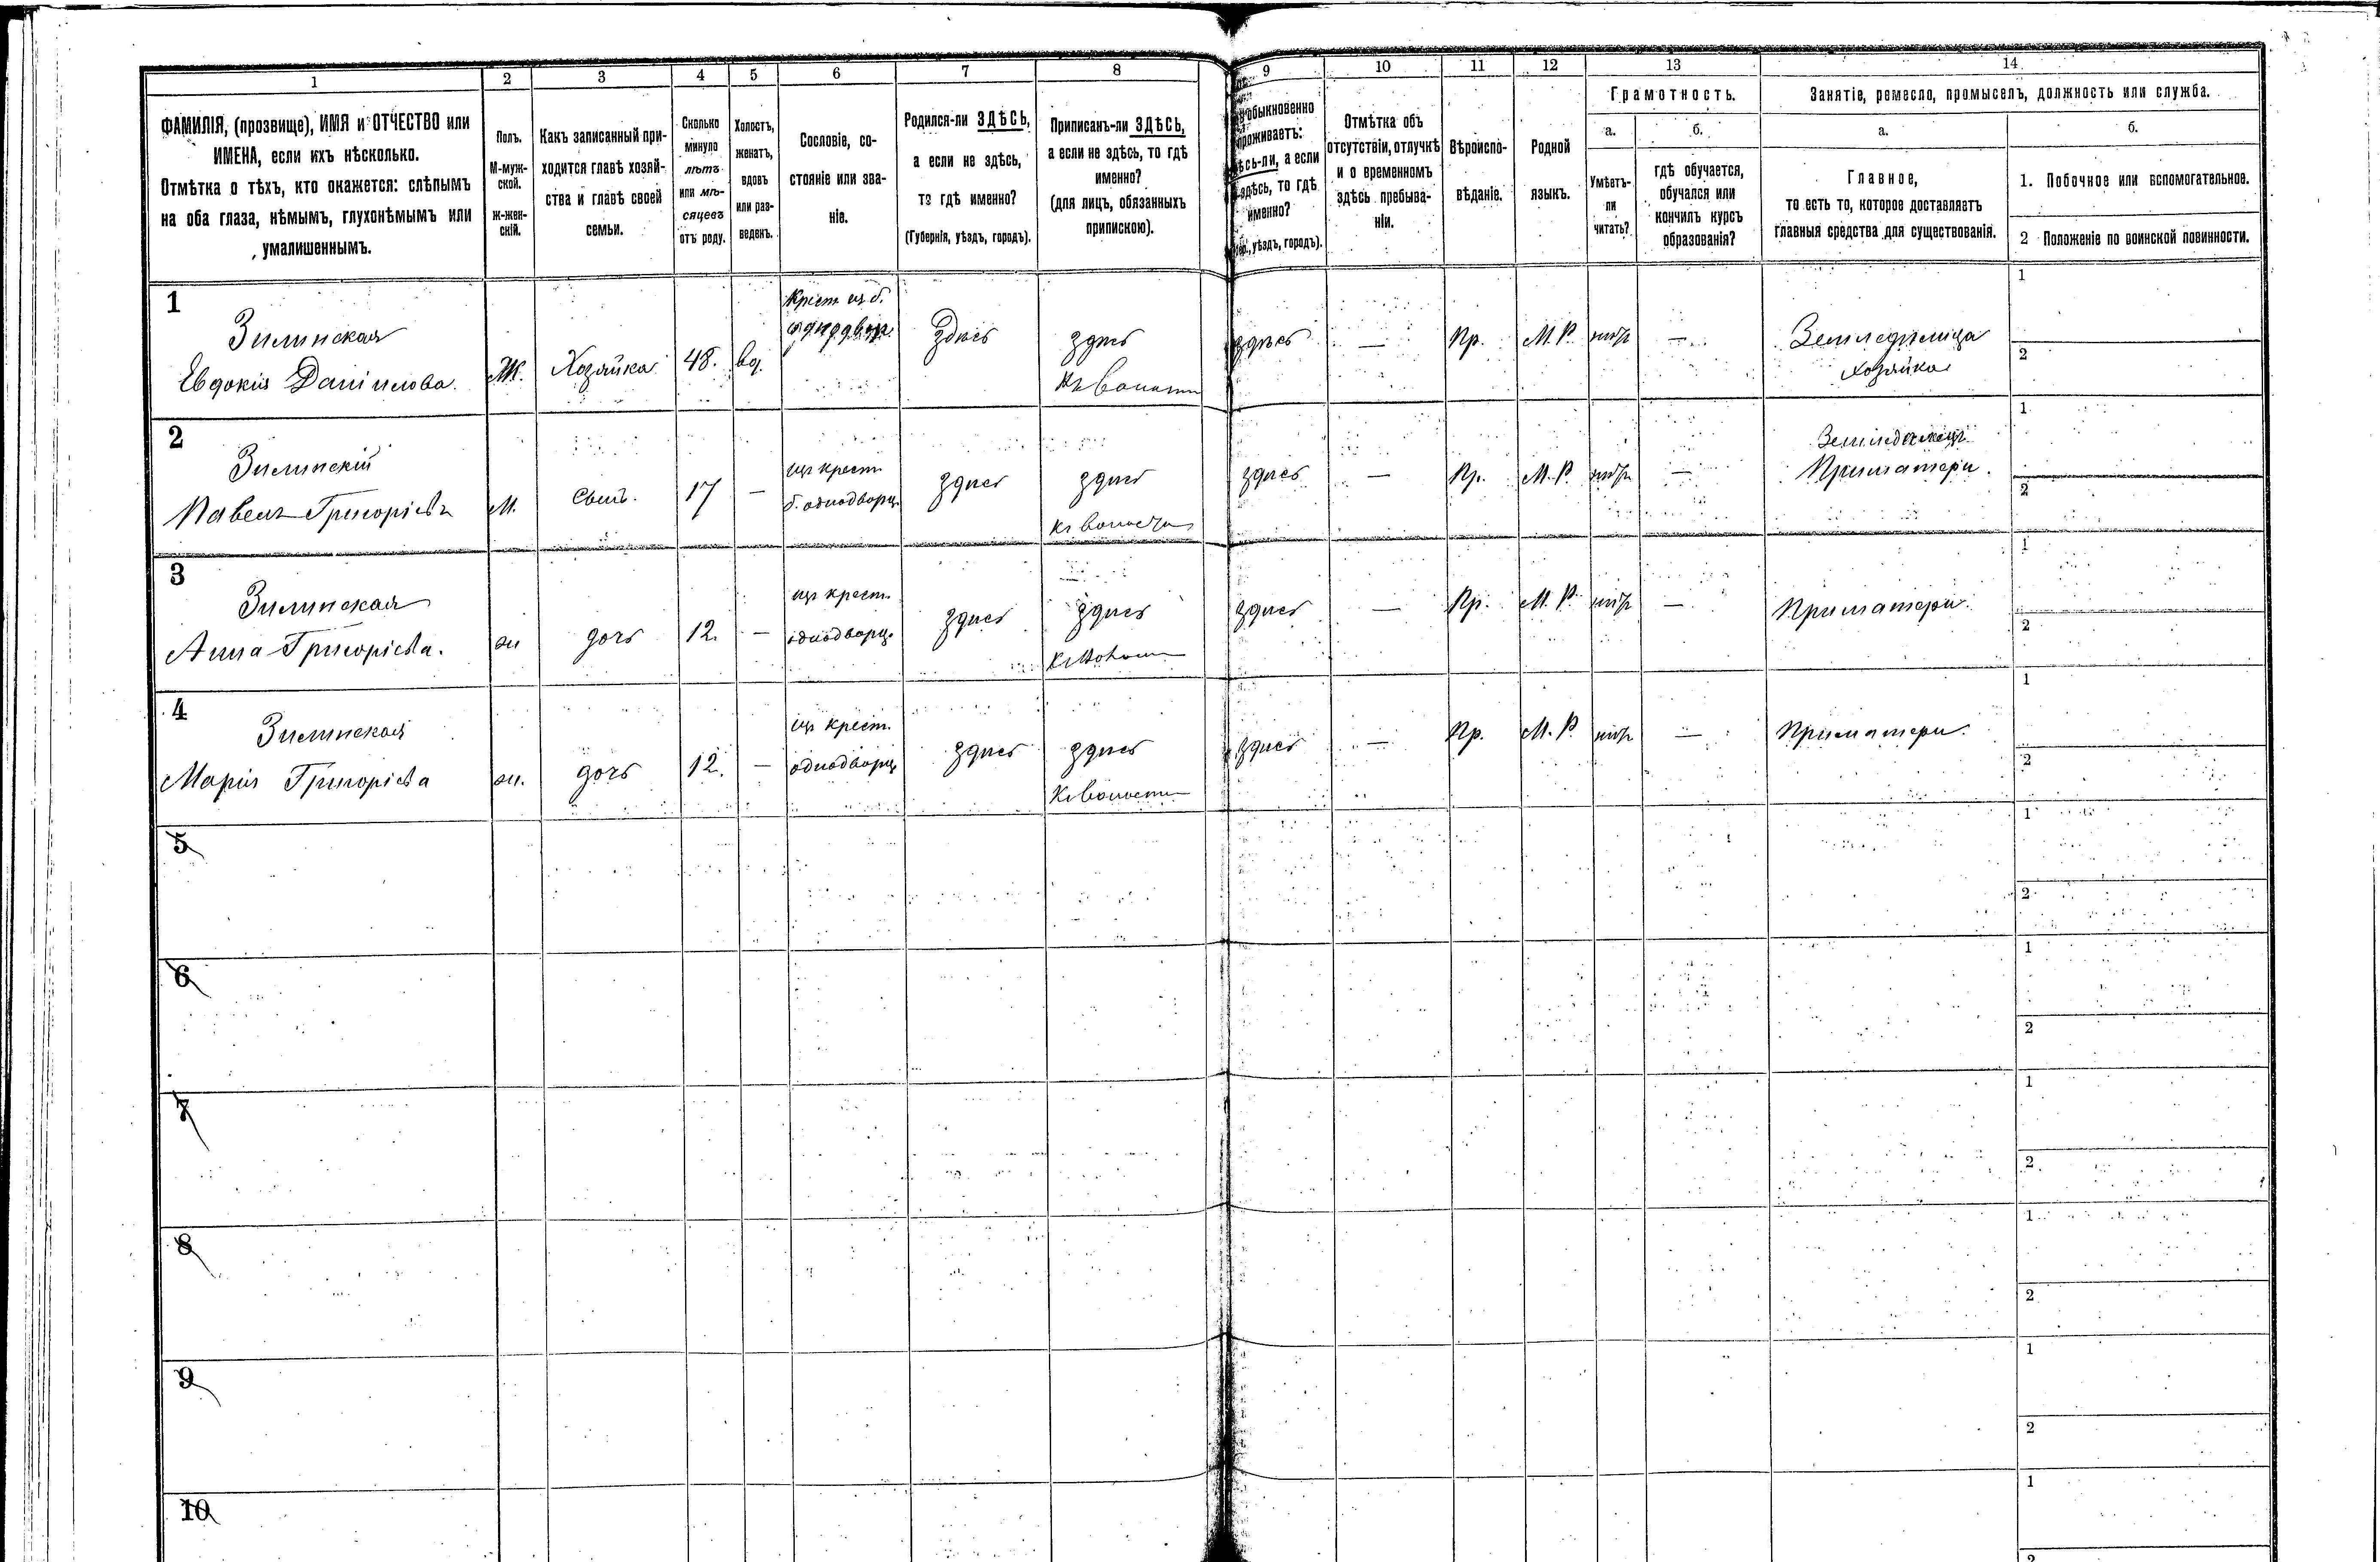 1 2 3 4 5 6 7 8 9 10 11 12 13 14
ФАМИЛІЯ, (прозвище), ИМЯ и ОТЧЕСТВО или
ИМЕНА, если ихъ нѣсколько.
Отмѣтка о тѣхъ, кто окажется: слѣпымъ
на оба глаза, нѣмымъ, глухонѣмымъ или
умалишеннымъ.
Полъ.
М-муж-
ской.
ж-жен-
скій.
Какъ записанный при-
ходится главѣ хозяй-
ства и главѣ своей
семьи.
Сколько
минуло
лѣтъ
или мѣ-
сяцевъ
отъ роду.
Холостъ,
женатъ,
вдовъ
или раз-
веденъ.
Сословіе, со-
стояніе или зва-
ніе.
Родился-ли ЗДѢСЬ,
а если не здѣсь,
то гдѣ именно?
(Губернія, уѣздъ, городъ).
Приписанъ-ли ЗДѢСЬ,
а если не здѣсь, то гдѣ
именно?
(для лицъ, обязанныхъ
припискою).
обыкновенно
проживаетъ:
а если
здѣсь, то гдѣ
именно?
уѣздъ, городъ).
Отмѣтка объ
отсутствіи, отлучкѣ
и о временномъ
здѣсь пребыва-
ніи.
Вѣроиспо-
вѣданіе.
Родной
языкъ.
Грамотность.
а.
Умѣетъ-
ли
читать?
б.
гдѣ обучается,
обучался или
кончилъ курсъ
образованія?
Занятіе, ремесло, промыселъ, должность или служба.
а.
Главное,
то есть то, которое доставляетъ
главныя средства для существованія.
б.
1. Побочное или вспомогательное.
2 Положеніе по воинской повинности.
1
Зилинская
Евдокія Данiилова.
Ж.
Хозяйка
48.
вд.
Крест. из б.
однодвор.
Здѣсь
здѣсь
къ волости
здѣсь
—
Пр.
М. Р.
нѣтъ
—
Земледѣлица
хозяйка
1
2
2
Зилинскій
Павелъ Григоріевъ
М.
Сынъ.
17
—
из крест.
б. однодворц.
здѣсь
здѣсь
къ волости
здѣсь
—
Пр.
М. Р.
нѣтъ
—
Земледѣлецъ
При матери.
1
2
3
Зилинская
Анна Григоріева.
ж
дочь
12.
—
из крест.
однодворц.
здѣсь
здѣсь
къ волости
здѣсь
—
Пр.
М. Р.
нѣтъ
—
При матери.
1
2
4
Зилинская
Марія Григоріева
ж.
дочь
12.
—
из крест.
однодворц.
здѣсь
здѣсь
къ волости
здѣсь
—
Пр.
М. Р.
нѣтъ
—
При матери.
1
2
5
1
2
6
1
2
7
1
2
8
1
2
9
1
2
10
1
2